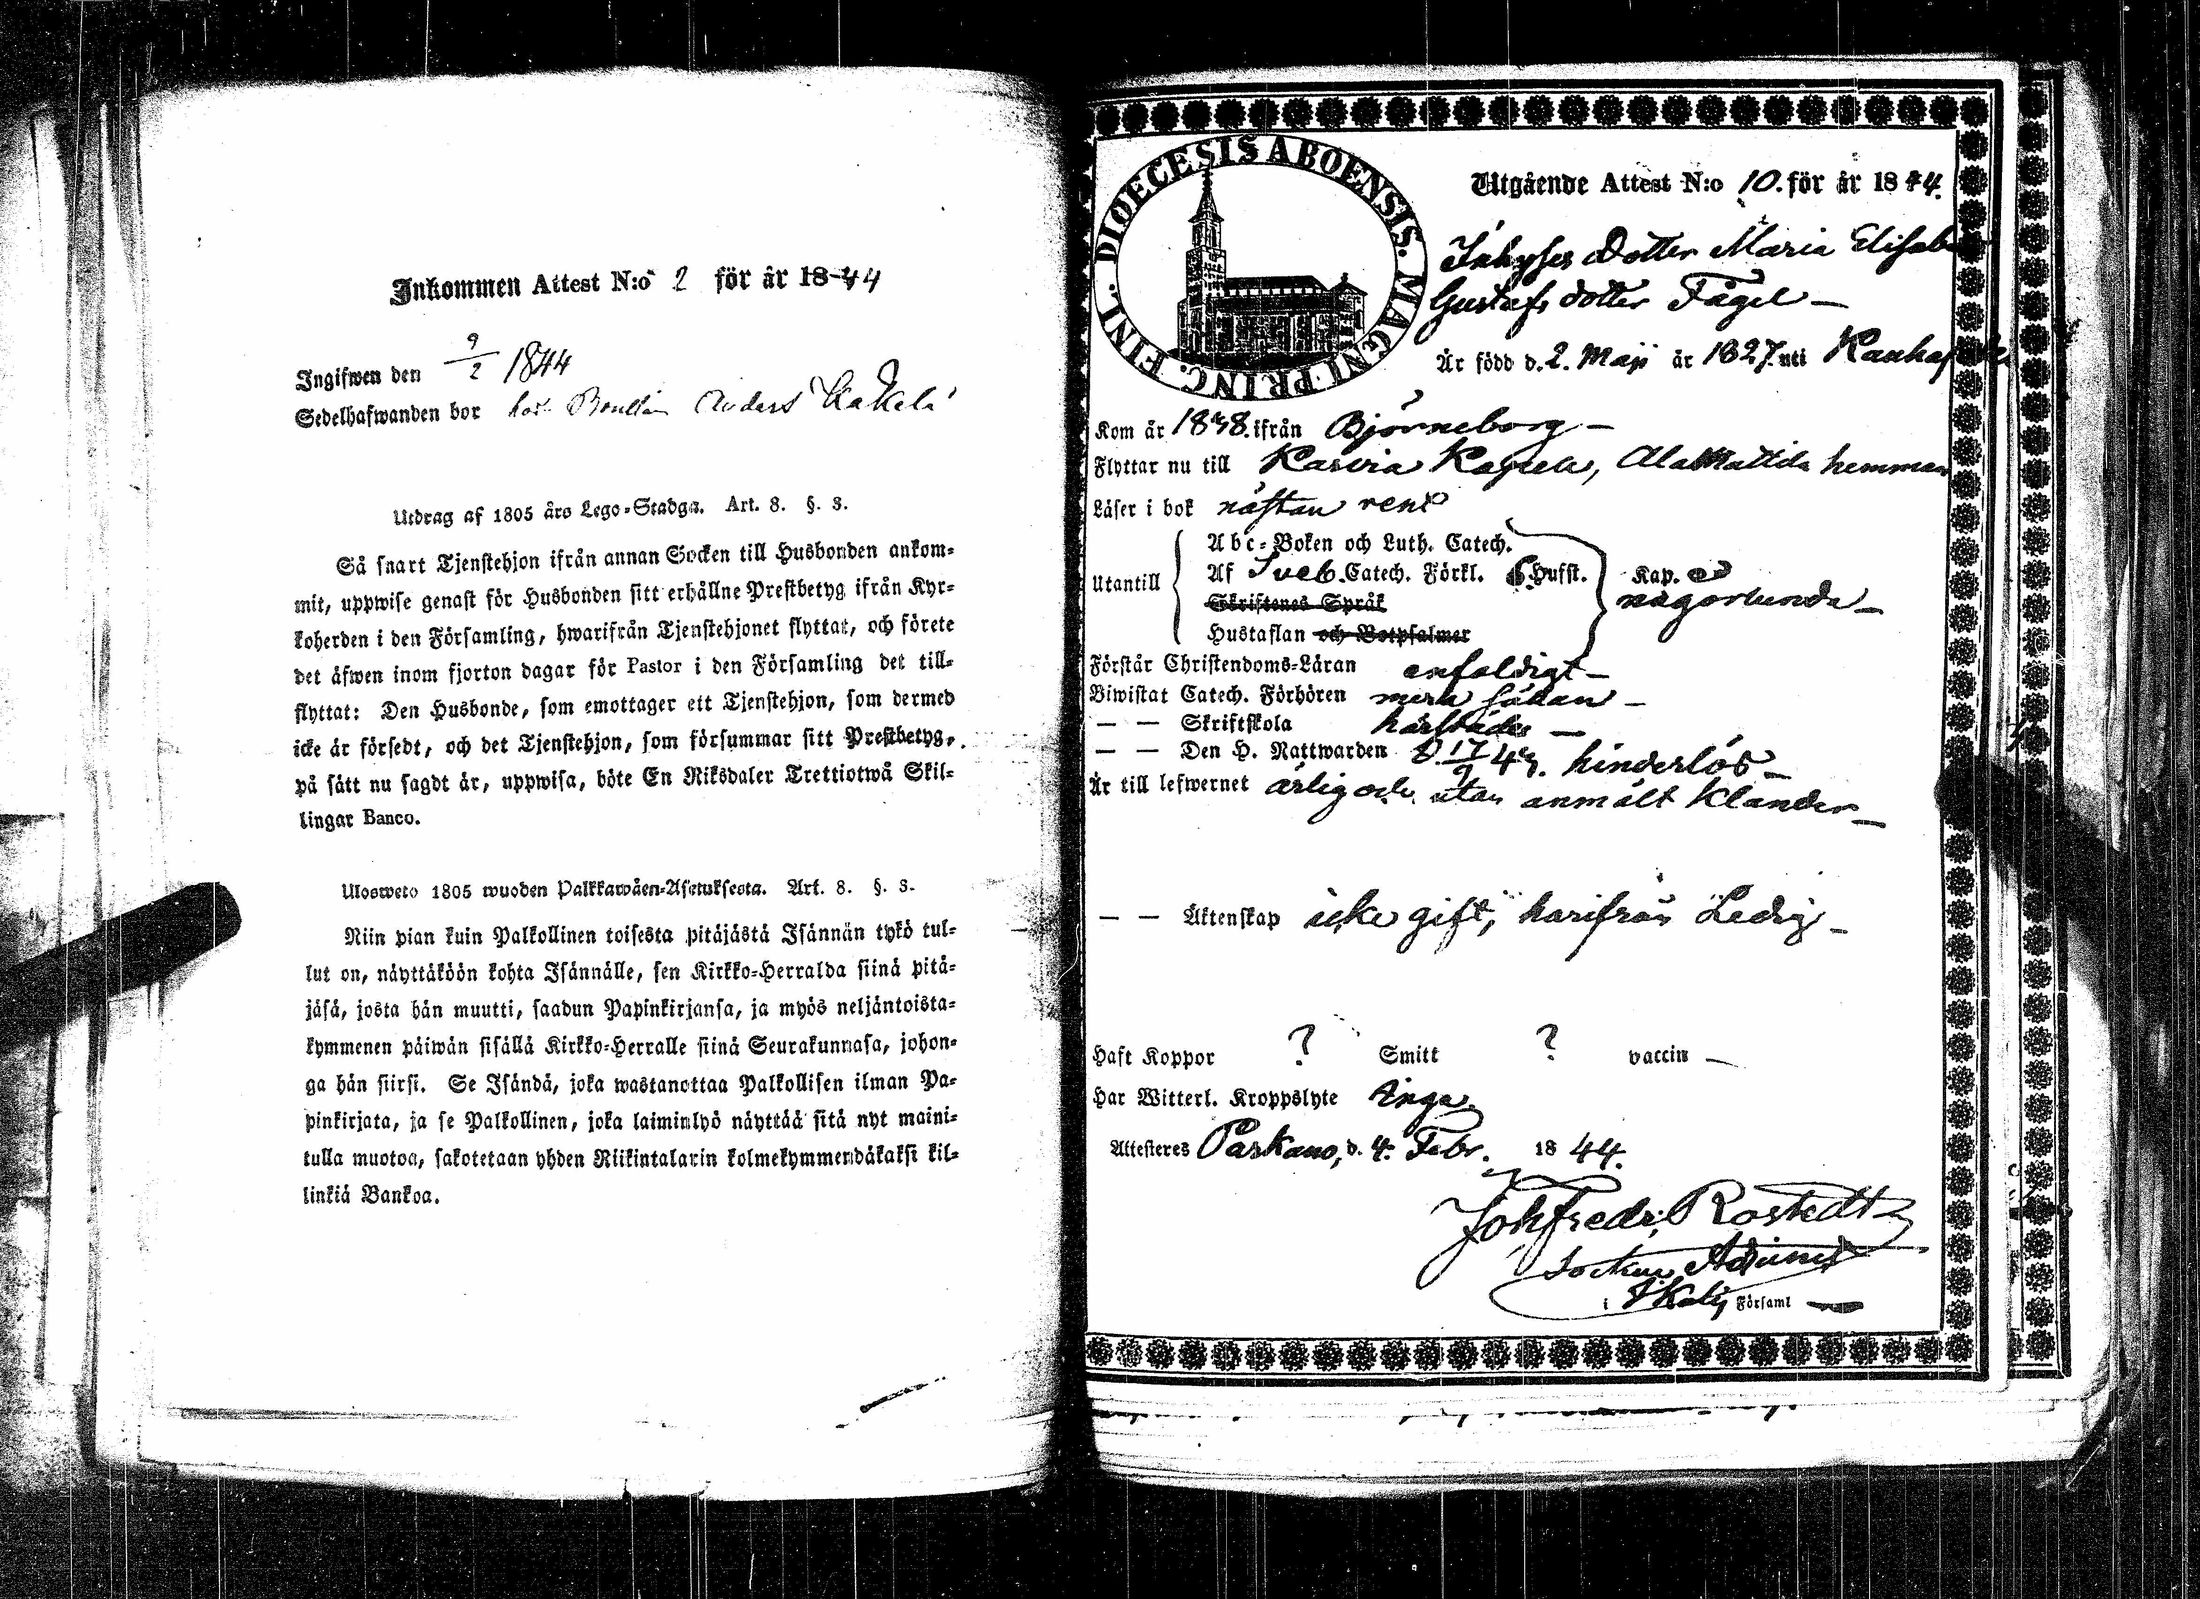 Inkommen Attest N:o 2 för år 18-44
Ingifwen den 9/2 1844
Sedelhafwanden bor hos Anders
Utdrag af 1805 års Lego-Stadga. Art. 8. §. 3.
Så snart Tjenstehjon ifrån annan Socken till Husbonden ankom-
mit, uppwise genast för Husbonden sitt erhållne Prestbetyg ifrån Kyr-
koherden i den Församling, hwarifrån Tjenstehjonet flyttat, och förete
det äfwen inom fjorton dagar för Pastor i den Församling det till-
flyttat: Den Husbonde, som emottager ett Tjenstehjon, som dermed
icke är försedt, och det Tjenstehjon, som försummar sitt Prestbetyg,
på sätt nu sagdt är, uppwisa, böte En Riksdaler Trettiotwå Skil-
lingar Banco.
Ulosweto 1805 wuoden Palkkawäen-Asetuksesta. Art. 8. §. 3.
Niin pian kuin Palkollinen toisesta pitäjästä Isännän tykö tul-
lut on, näyttäköön kohta Isännälle, sen Kirkko-Herralda siinä pitä-
jäsä, josta hän muutti, saadun Papinkirjansa, ja myös neljäntoista-
kymmenen päiwän sisällä Kirkko-Herralle siinä Seurakunnasa, johon-
ga hän siirsi. Se Isändä, joka wastanottaa Palkollisen ilman Pa-
pinkirjata, ja se Palkollinen, joka laiminlyö näyttää sitä nyt maini-
tulla muotoa, sakotetaan yhden Riikintalarin kolmekymmendäkaksi kil-
linkiä Bankoa.
DIOECESIS ABOENSIS. MAGNI PRINC. FINL.
Utgående Attest N:o 10. för år 1844.
Inhyses Dotter Maria Elisab
Gustafs dotter Fågel
Är född d. 2. Maji år 1827 uti
Kom år 1838. ifrån Björneborg
Flyttar nu till Karvia Kapell, Alamattila hemman
Läser i bok nästan rent
Utantill
Abc-Boken och Luth. Catech.
Af Sveb. Catech. Förkl. 6 Hufst. Kap.
Skriftenes Språk någorlunda
Hustaflan och Botpsalmer
Förstår Christendoms-Läran enfaldigt
Biwistat Catech. Förhören mera sällan
— — Skriftskola härstädes
— — Den H. Nattwarden d. 17/9 43. hinderlös
Är till lefwernet ärlig och utan anmält klander
— — Äktenskap icke gift, härifrån Ledig
Haft Koppor ? Smitt ? vaccin —
Har Witterl. Kroppslyte Inga
Attesteres Parkano, d. 4. Febr. 1844.
Joh Fredr. Rostedt
Socken Adjunct
i Ikalis Församl